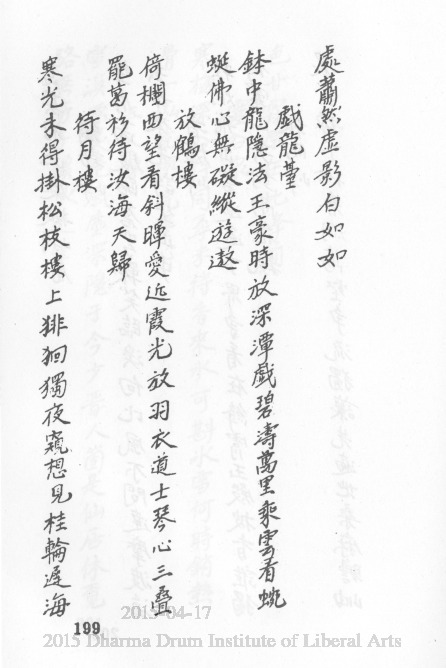 處蕭然虛影白如如
戲龍臺
鉢中龍隱法王豪時放深潭戲碧濤萬里乘雲看蜿
蜒佛心無礙縱遊遨
放鶴樓
倚欄西望看斜暉愛近霞光放羽衣道士琴心三疊
罷葛衫待汝海天歸
待月樓
寒光未得掛松枝樓上徘徊獨夜窺想見桂輪遲海
199
2015-04-17
2015 Dharma Drum Institute of Liberal Arts